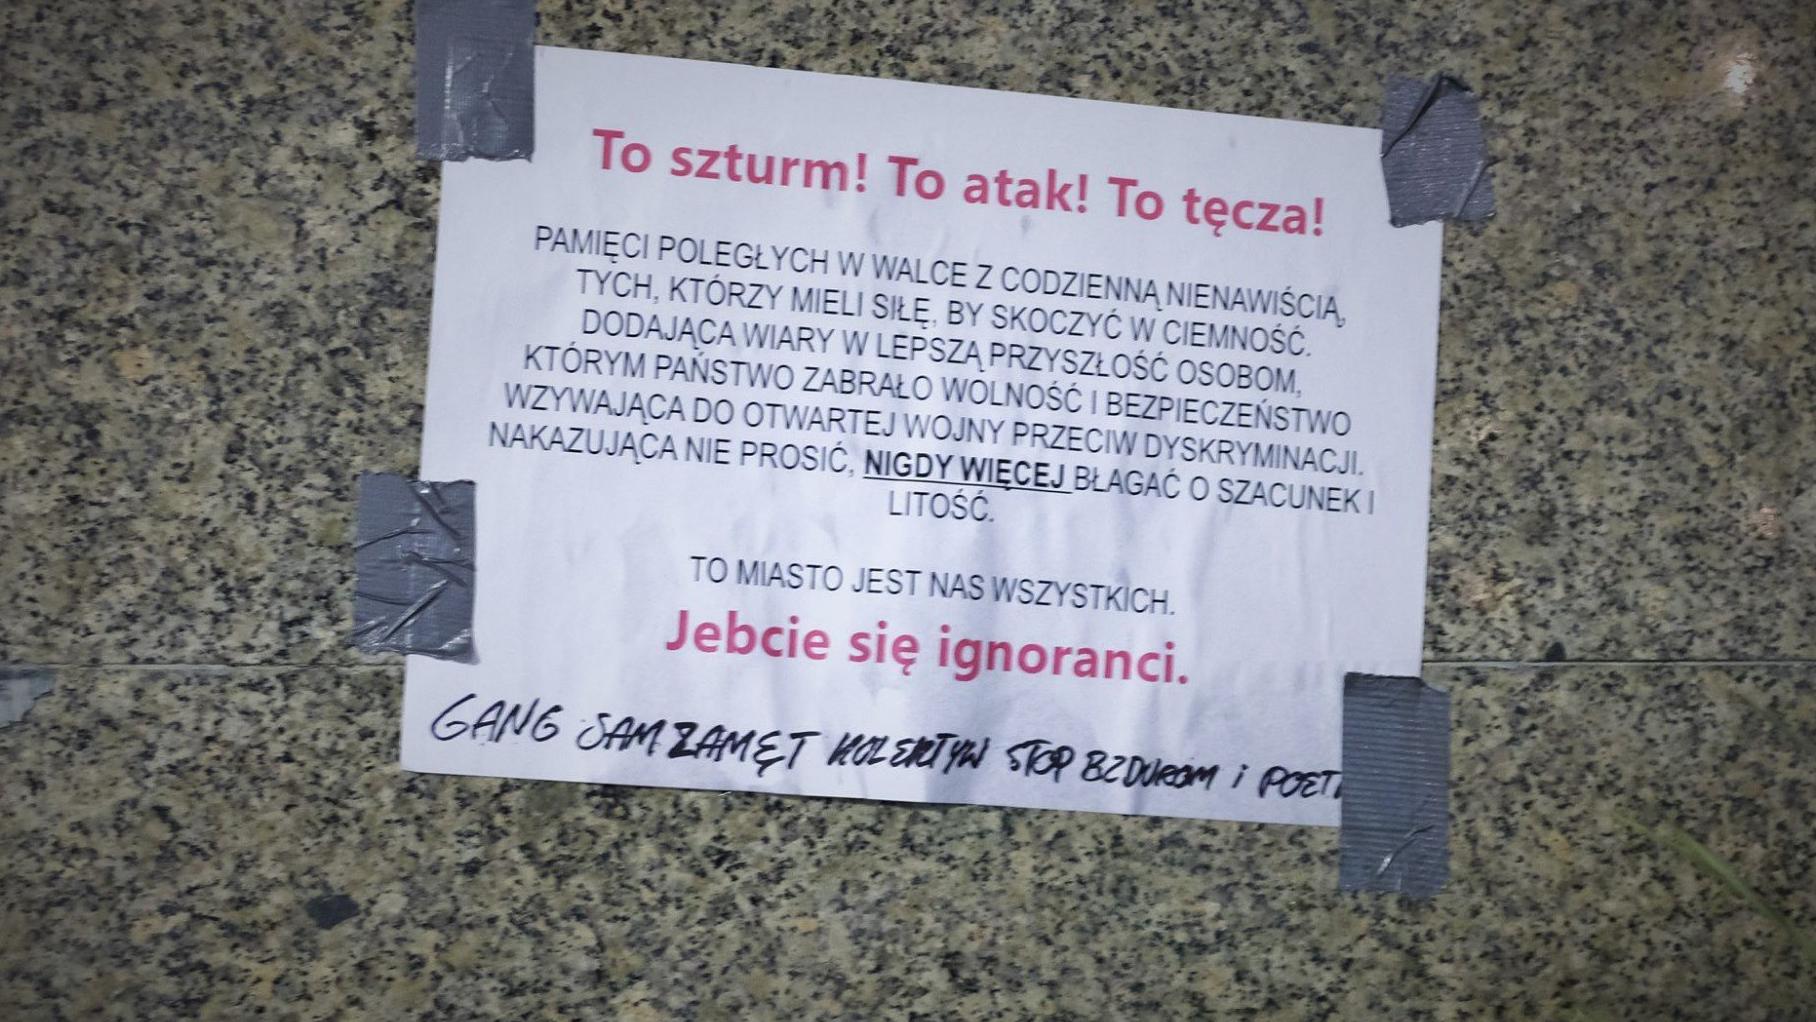 To szturm! To atak! To tęcza!
PAMIĘCI POLEGŁYCH W WALCE Z CODZIENNĄ NIENAWIŚCIĄ,
TYCH, KTÓRZY MIELI SIŁĘ, BY SKOCZYĆ W CIEMNOŚĆ.
DODAJĄCA WIARY W LEPSZĄ PRZYSZŁOŚĆ OSOBOM,
KTÓRYM PAŃSTWO ZABRAŁO WOLNOŚĆ I BEZPIECZEŃSTWO
WZYWAJĄCA DO OTWARTEJ WOJNY PRZECIW DYSKRYMINACJI.
NAKAZUJĄCA NIE PROSIĆ, NIGDY WIĘCEJ BŁAGAĆ O SZACUNEK I
LITOŚĆ.
TO MIASTO JEST NAS WSZYSTKICH.
Jebcie się ignoranci.
GANG SAM ZAMĘT KOLEKTYW STOP BZDUROM i